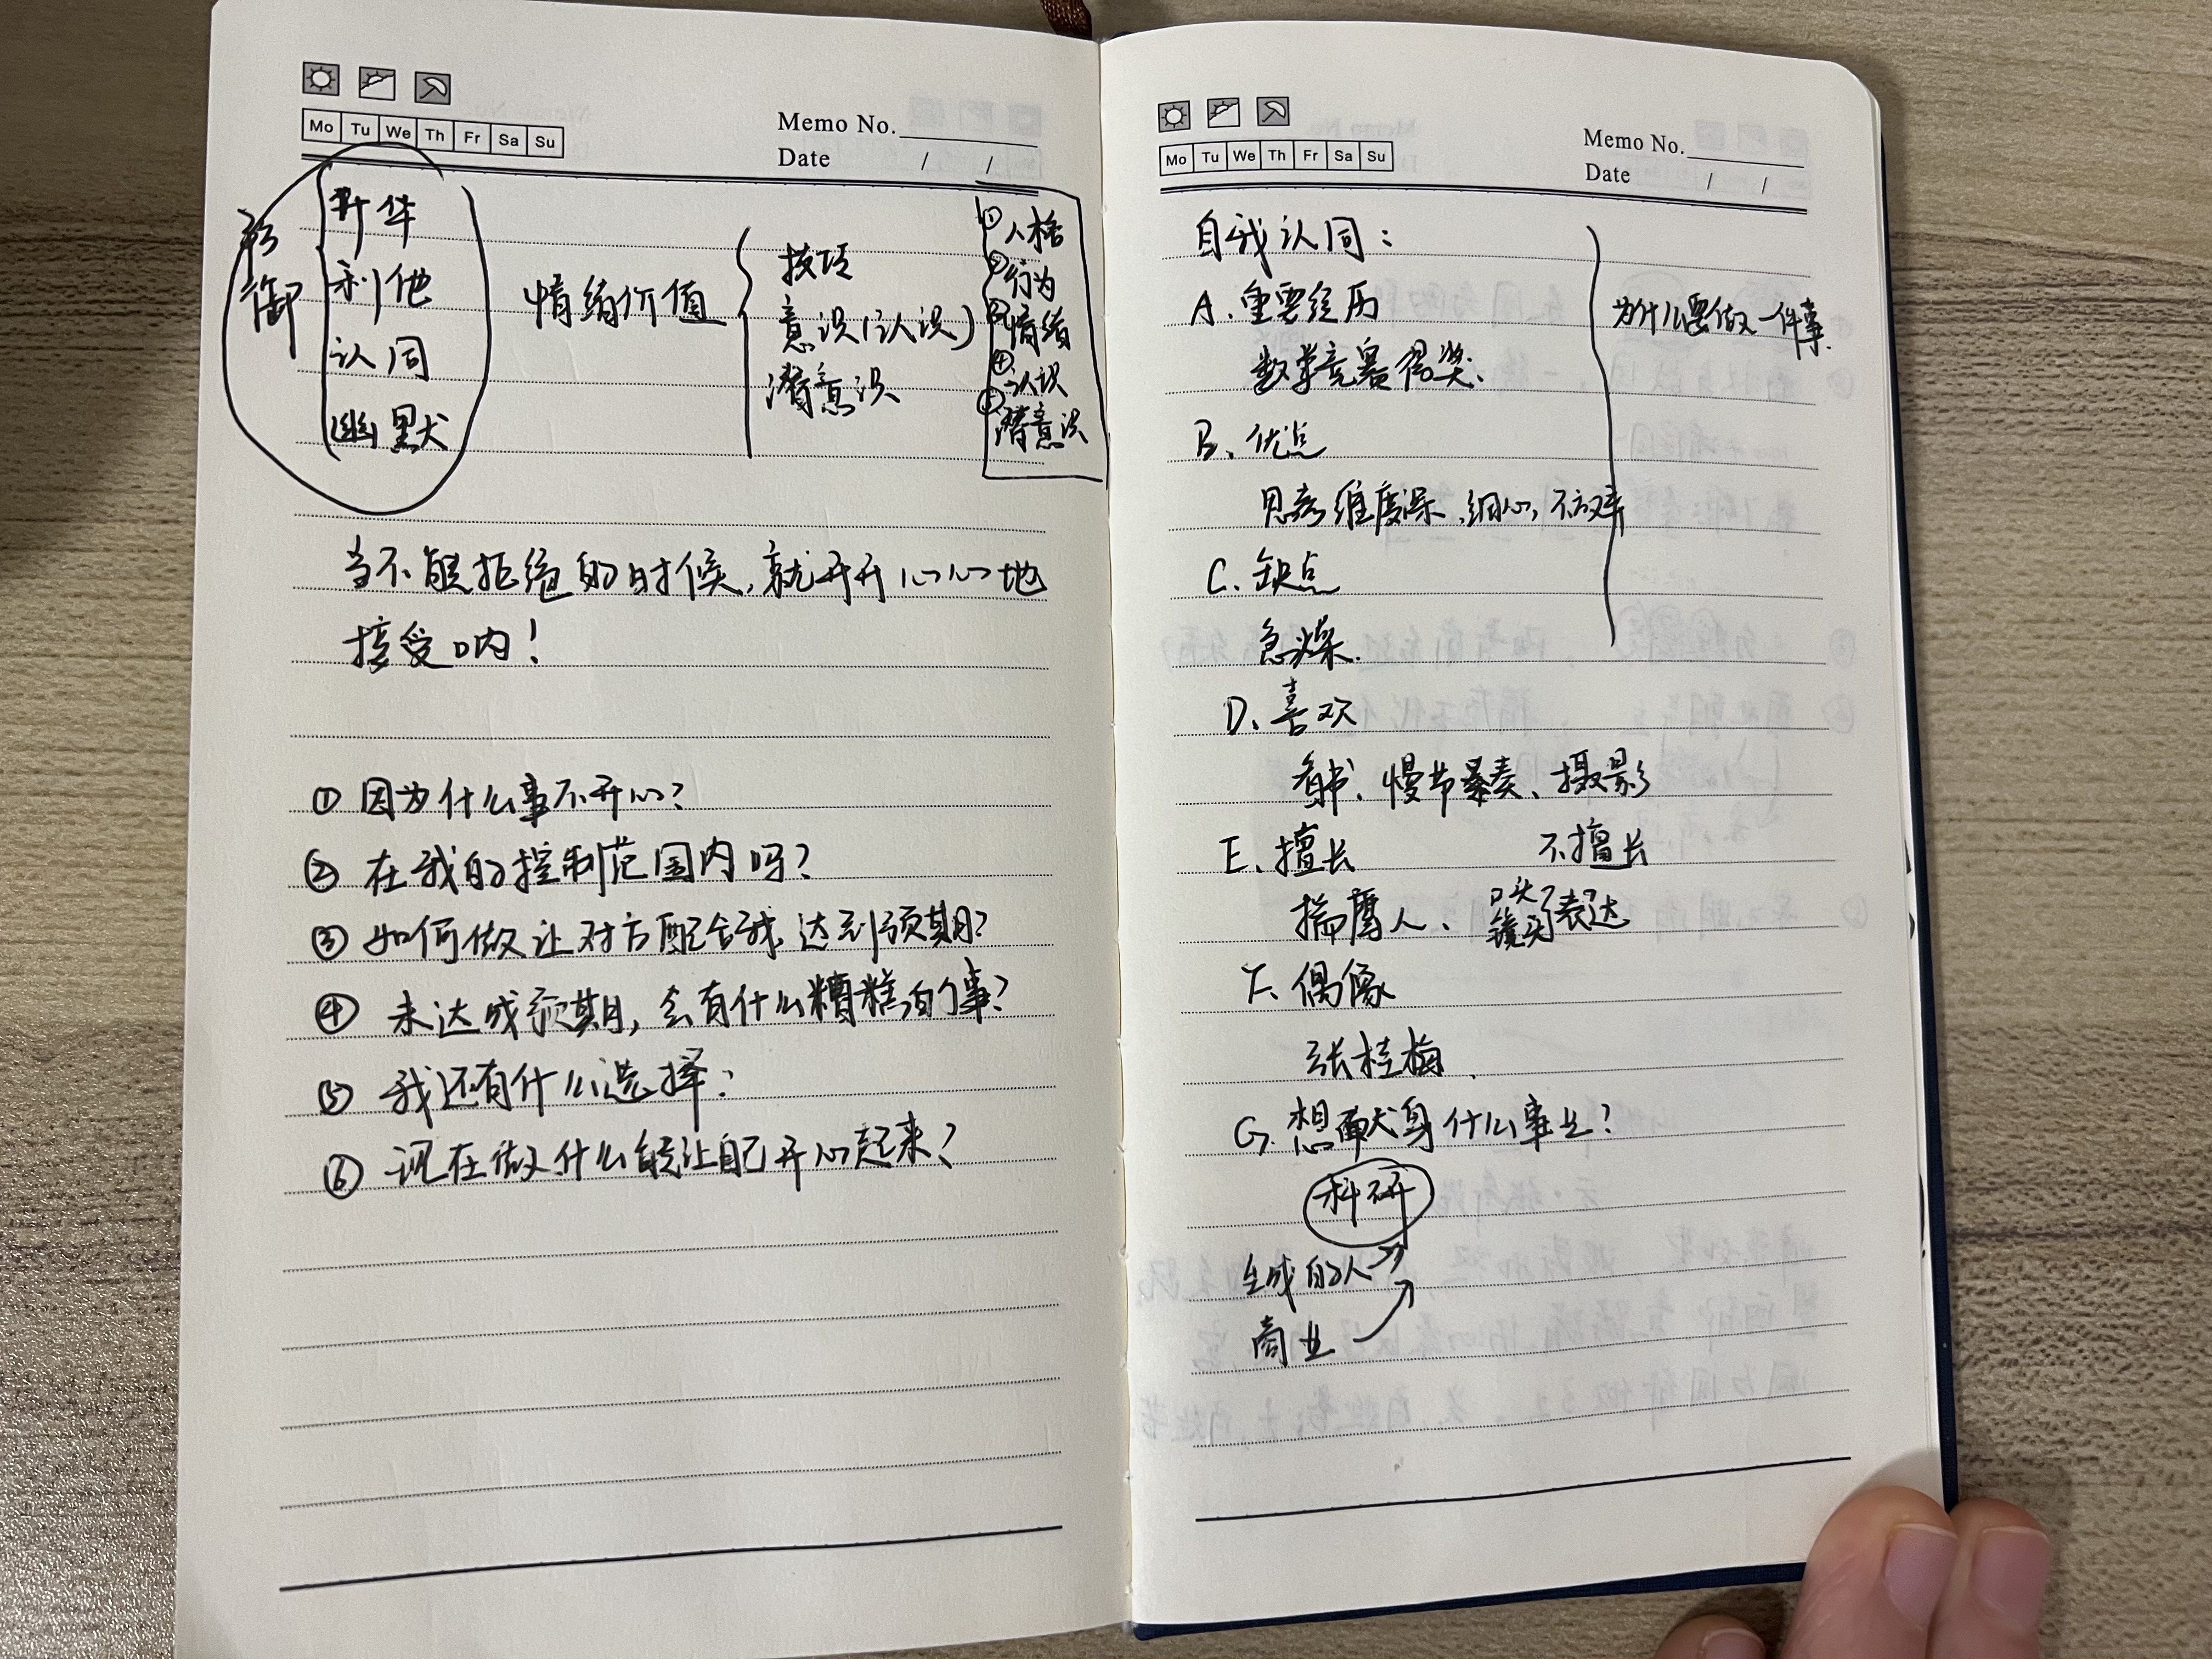 Mo Tu We Th Fr Sa Su
Memo No.
Date / /
防御
升华
利他
认同
幽默
情绪价值
技巧
意识(认识)
潜意识
①人格
②行为
③情绪
④认识
⑤潜意识
当不能拒绝的时候,就开开心心地
接受呐!
① 因为什么事不开心?
② 在我的控制范围内吗?
③ 如何做让对方配合我,达到预期?
④ 未达成预期,会有什么糟糕的事?
⑤ 我还有什么选择?
⑥ 现在做什么能让自己开心起来?
Mo Tu We Th Fr Sa Su
Memo No.
Date / /
自我认同:
A. 重要经历
数学竞赛得奖.
B. 优点
思考维度深、细心,不放弃
C. 缺点
急躁.
D. 喜欢
看书、慢节奏、摄影
E. 擅长 不擅长
揣摩人、
口头
镜头 表达
F. 偶像
张桂梅
G. 想献身什么事业?
科研
的人
商业
为什么要做一件事.